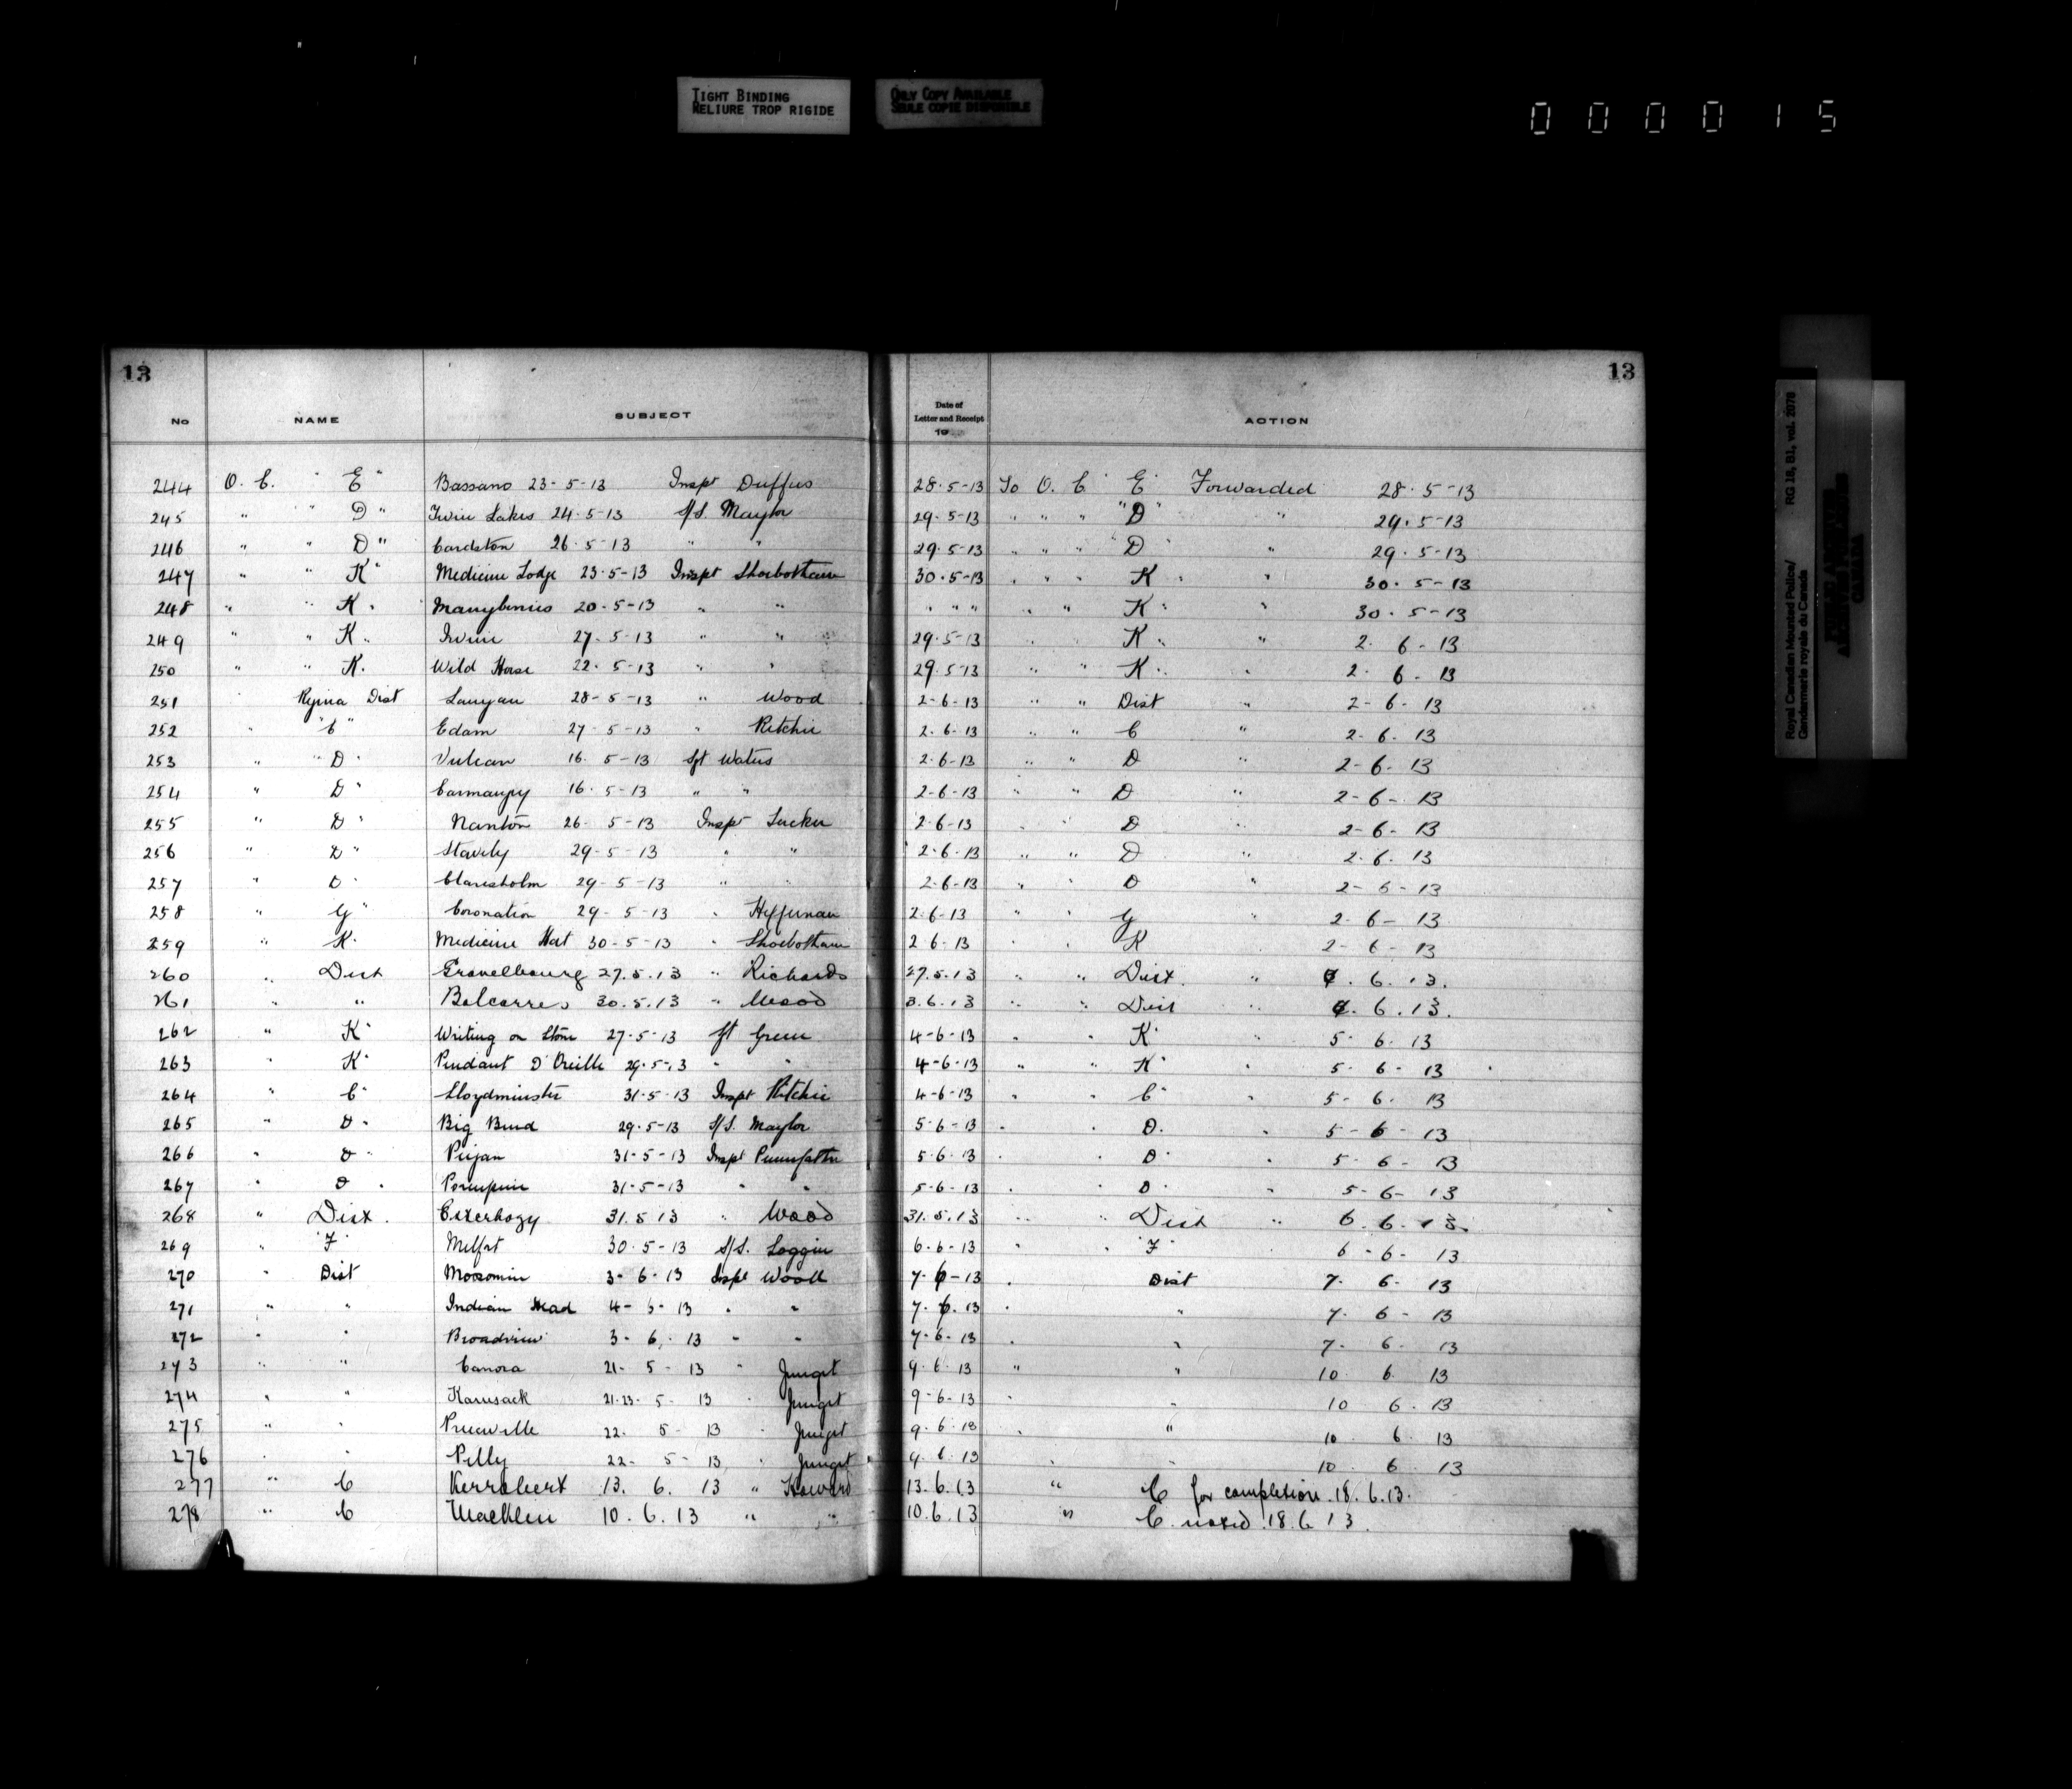 TIGHT BINDING
RELIURE TROP RIGIDE
ONLY COPY AVAILABLE
SEULE COPIE DISPONIBLE
000015
13 13
No NAME SUBJECT Date of Letter and Receipt 19 ACTION
244 O. C. " E " Bassano 23-5-13 Inspt Duffus 28.5-13 To O. C. E Forwarded 28.5-13
245 " " D " Twin Lakes 24.5-13 S/S. Maylor 29.5-13 " " " "D" " 29.5-13
246 " " D " Cardston 26.5-13 " " 29.5-13 " " " D " 29.5-13
247 " " K " Medicine Lodge 23.5-13 Inspt Shoebotham 30.5-13 " " " K " " 30.5-13
248 " " K " Manyberries 20-5-13 " " " " " " " K " " 30.5-13
249 " " K " Irvine 27.5-13 " " 29.5-13 K " " 2. 6-13
250 " " K. Wild Horse 22.5-13 " " 29.5-13 " " K " 2. 6-13
251 Regina Dist Lanyan 28-5-13 " Wood 2-6-13 " " Dist " 2-6-13
252 " "C" Edam 27-5-13 " Ritchie 2.6-13 " " C " 2-6-13
253 " " D " Vulcan 16.5-13 Sgt Waters 2-6-13 " " D " 2-6-13
254 " D " Carmangay 16.5-13 " " 2-6-13 " " D " 2-6-13
255 " D " Nanton 26.5-13 Inspt Tucker 2-6-13 D " 2-6-13
256 " D " Stavely 29-5-13 " " 2-6-13 " " D " 2.6.13
257 " D " Claresholm 29-5-13 " " 2-6-13 " " D " 2-6-13
258 " G " Coronation 29-5-13 " Heffernan 2-6-13 " " G " 2-6-13
259 " K. Medicine Hat 30-5-13 " Shoebotham 2 6-13 " K 2-6-13
260 " Dist Gravelbourg 27.5.13 " Richards 27.5.13 " " Dist. " 6.13.
261 " " Balcarres 30.5.13 " Wood 3.6.13 " " Dist " 6.13.
262 " K " Writing on Stone 27.5-13 Sgt Green 4-6-13 " " K " " 5.6.13
263 " K " Pendant D'Oreille 29.5-13 " " 4-6-13 " " K " " 5-6-13
264 " C " Lloydminster 31.5-13 Inspt Ritchie 4-6-13 " " C " " 5-6.13
265 " D " Big Bend 29.5-13 S/S. Maylor 5-6-13 " " D. " 5-6-13
266 " D " Piegan 31-5-13 Inspt Pennefather 5.6.13 " " D " " 5-6-13
267 " D " Porcupine 31-5-13 " " 5-6-13 " " D " " 5-6-13
268 " Dist. Esterhazy 31.5 13 " Wood 31.5.13 " " Dist " 6.6.13.
269 " "F" Melfort 30.5-13 S/S. Loggin 6.6-13 " " "F" 6-6-13
270 " Dist Moosomin 3-6-13 Inspt Wood 7-6-13 " Dist 7.6.13
271 " " Indian Head 4-6-13 " " 7.6.13 " " 7.6-13
272 " " Broadview 3-6.13 " " 7-6-13 " " 7.6.13
273 " " Canora 21-5-13 " Junget 9.6.13 " " 10.6.13
274 " " Kamsack 21-23-5-13 " Junget 9-6-13 " " 10 6.13
275 " " Preeceville 22.5-13 " Junget 9.6.13 " " 10.6.13
276 " " Pelly 22-5-13 " Junget 9.6.13 " " 10.6.13
277 " C Kerrobert 13.6.13 " Howard 13.6.13 " C for completion 18.6.13.
278 " C Macklin 10.6.13 " " 10.6.13 " C. noted 18.6 13.
Royal Canadian Mounted Police/ RG 18, B1, vol. 2078
Gendarmerie royale du Canada